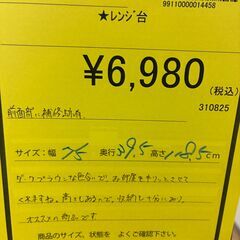 99110000014458
★レンジ台
¥6,980
(税込)
310825
前面部に補修跡有。
サイズ:幅 75 奥行 39.5 高さ 118.5cm
ダークブラウンな色合いで、お部屋をキリッとさせて
くれますね。高さもあるので、収納も十分にあり、
オススメの商品です
商品のサイズ、状態を よくご確認下さい。